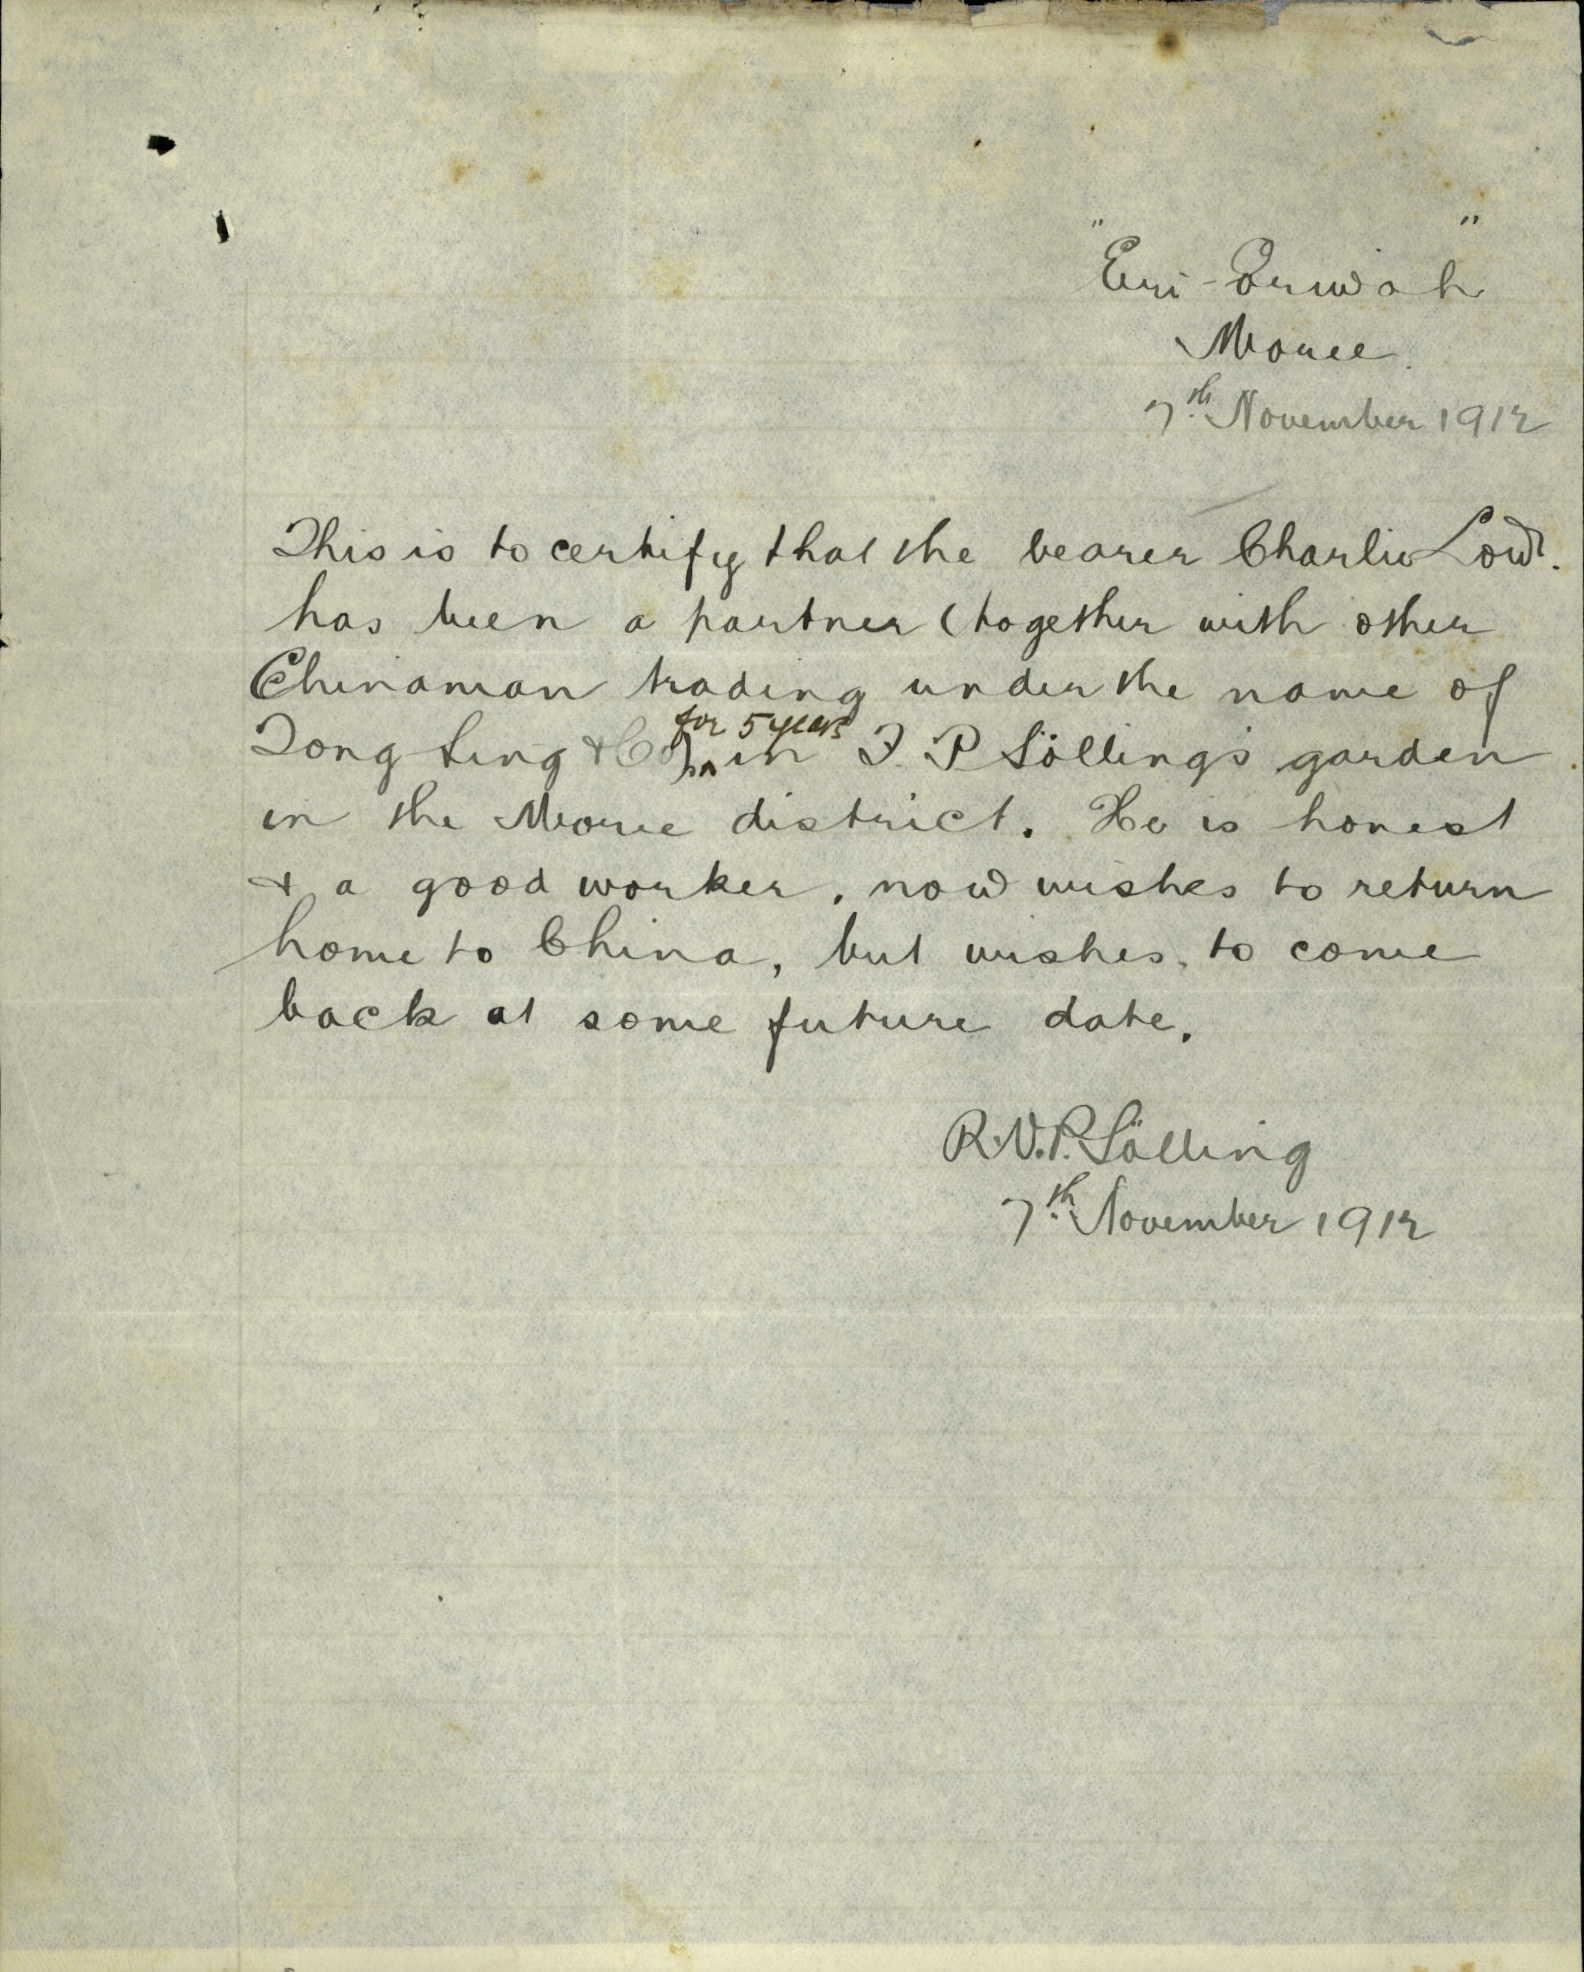 "Euri-Oriwah"
Moree.
7th November 1912
This is to certify that the bearer Charlie Low.
has been a partner (together with other
Chinaman trading under the name of
for 5 years
Tong Ling & Co) in F. P Sölling's garden
in the Moree district. He is honest
& a good worker, now wishes to return
home to China, but wishes, to come
back at some future date.
R.N.P. Sölling
7th November 1912